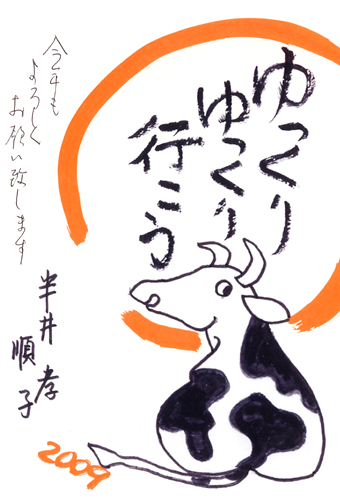 ゆっくり
ゆっくり
行こう
今年も
よろしく
お願い致します
半井孝
順子
2009